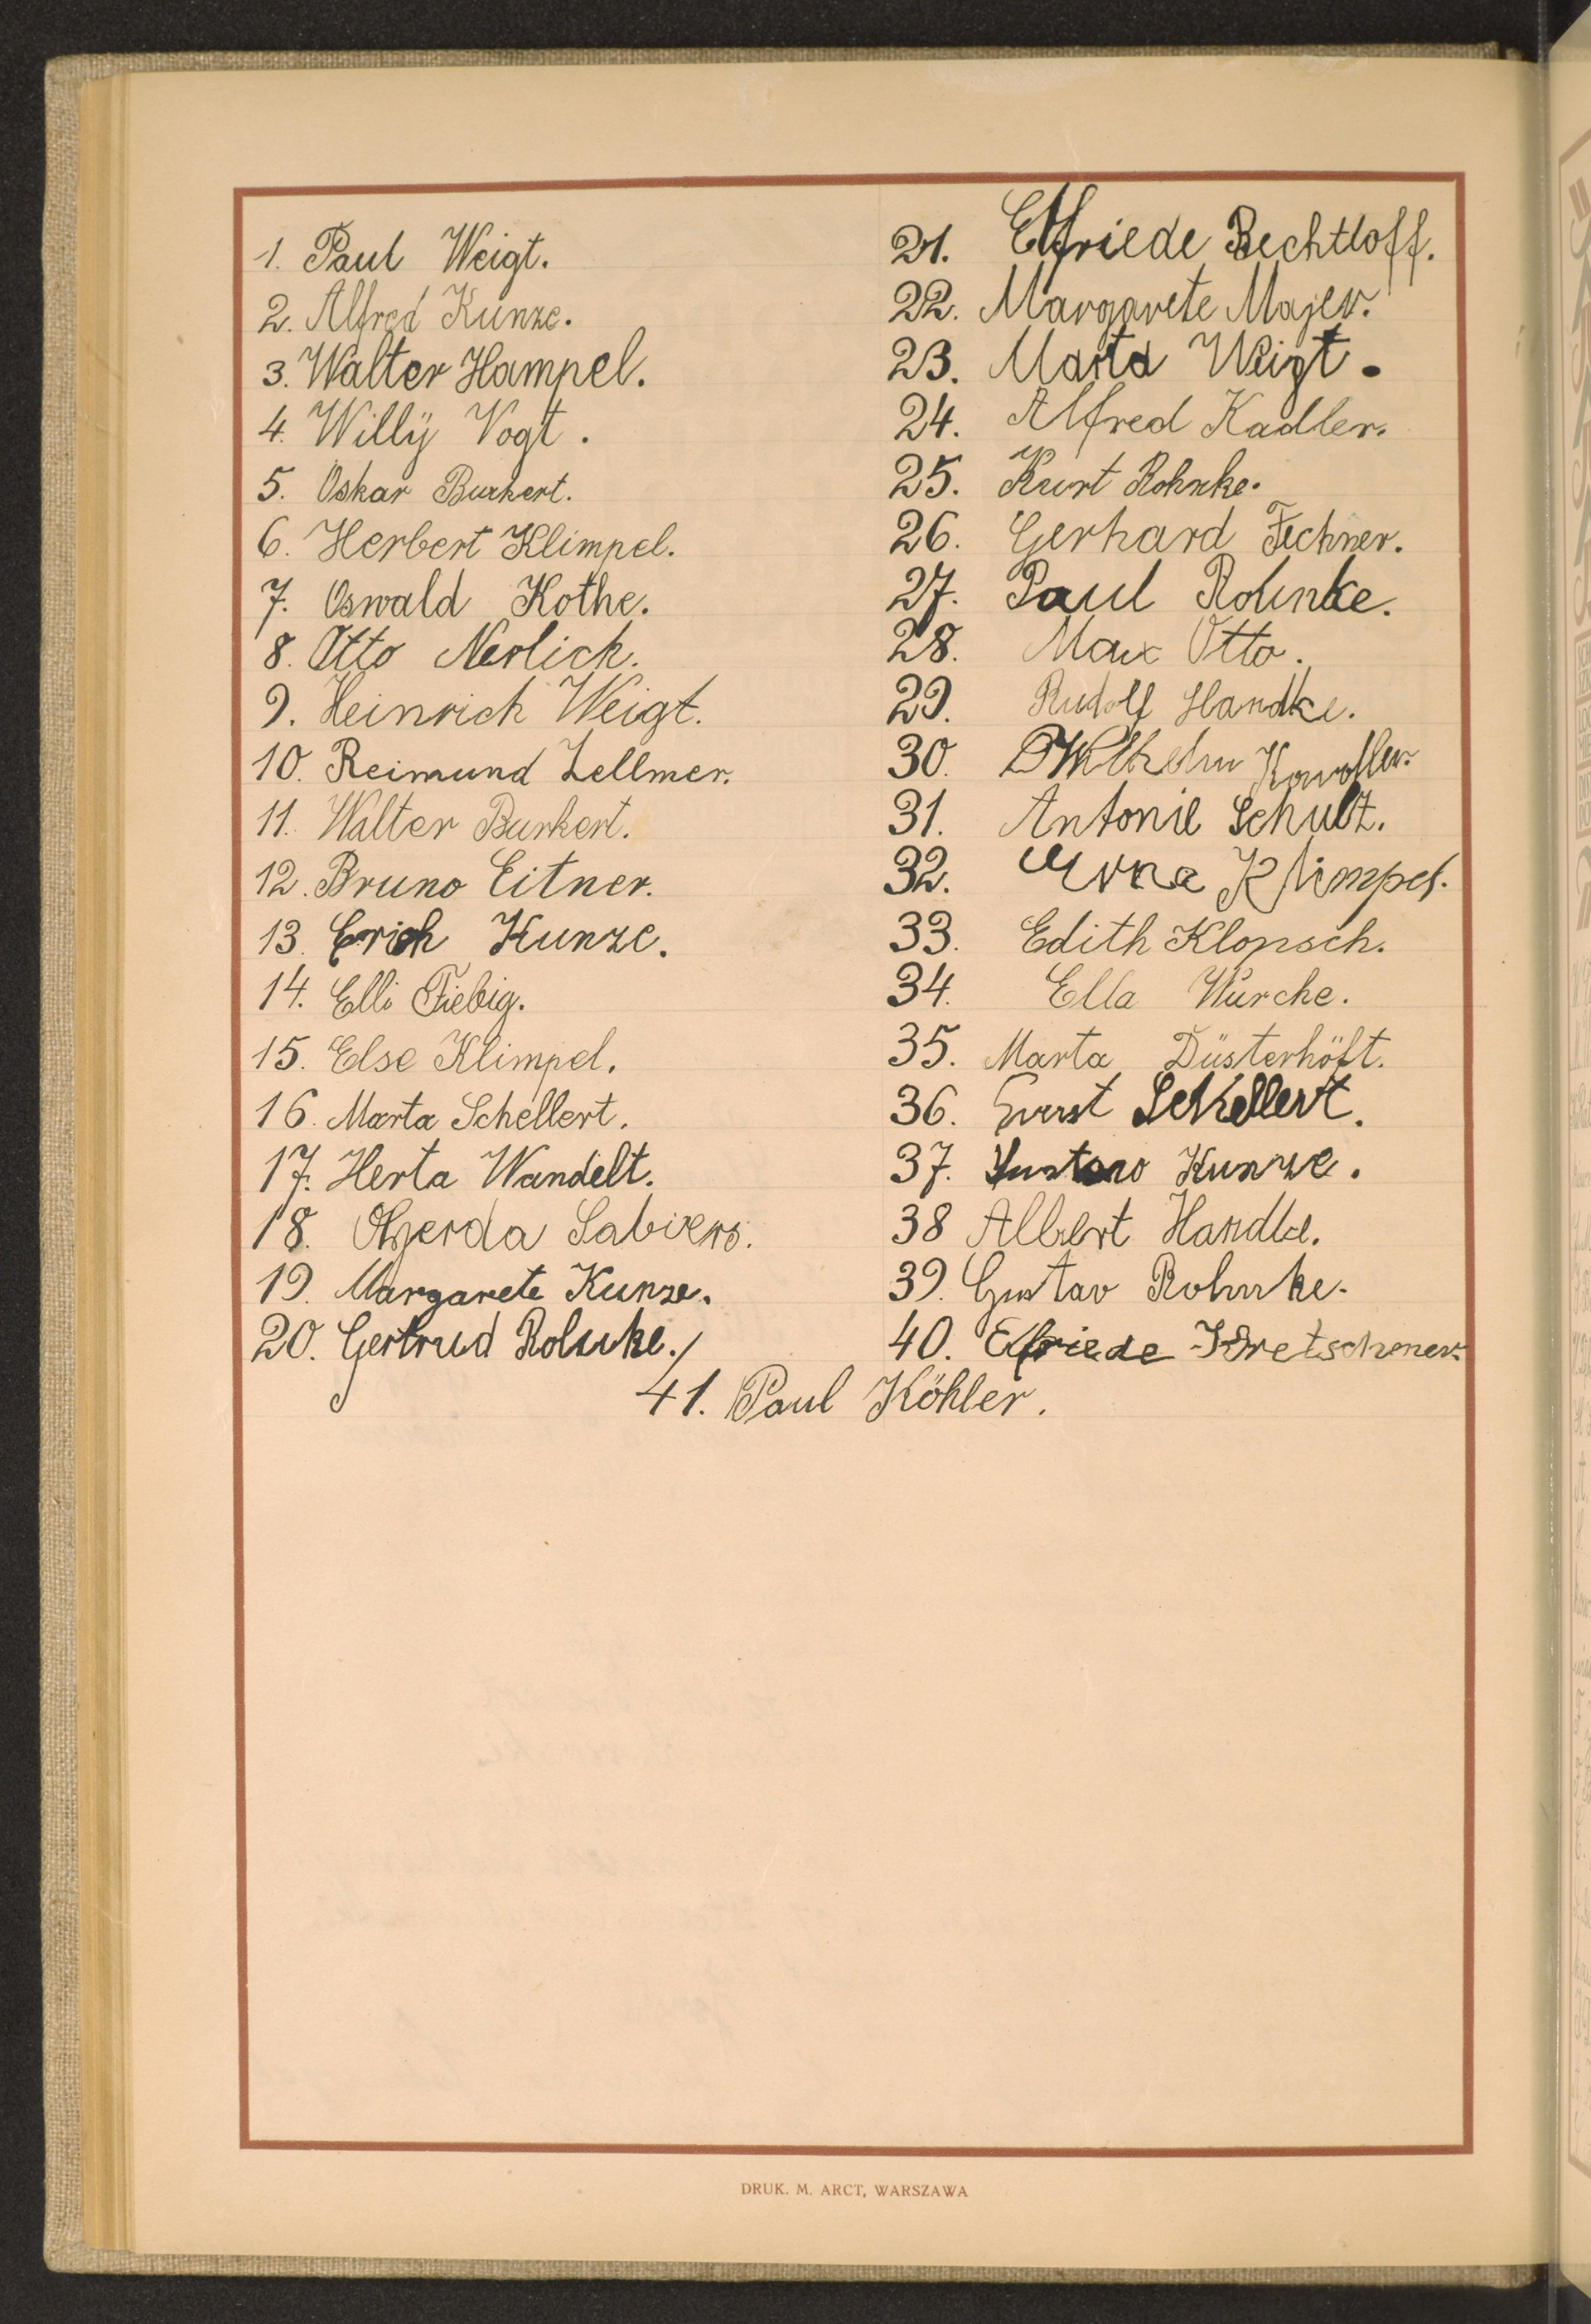 1. Paul Weigt.
2. Alfred Kunze.
3. Walter Hampel.
4. Willÿ Vogt.
5. Oskar Burkert.
6. Herbert Klimpel.
7. Oswald Kothe.
8. Otto Nerlich.
9. Heinrich Weigt.
10. Reimund Zellmer.
11. Walter Burkert.
12. Bruno Eitner.
13. Erich Kunze.
14. Elli Fiebig.
15. Else Klimpel.
16. Marta Schellert.
17. Herta Wandelt.
18. Gerda
19. Margarete Kunze.
20. Gertrud Rohnke.
21. Elfriede Bechtloff.
22. Margarete Majer.
23. Marta Weigt.
24. Alfred Kadler.
25. Kurt Rohnke.
26. Gerhard Fechner.
27. Paul Rohnke.
28. Max Otto.
29. Rudolf Handke.
30. Wilhelm
31. Antonie Schulz.
32. Erna Klimpel.
33. Edith Klopsch.
34. Ella Wurche.
35. Marta Düsterhöft.
36. Ernst Schellert.
37. Kunze.
38 Albert Handke.
39. Gustav Rohnke.
40. Elfriede Kretschmer.
41. Paul Köhler.
DRUK. M. ARCT, WARSZAWA